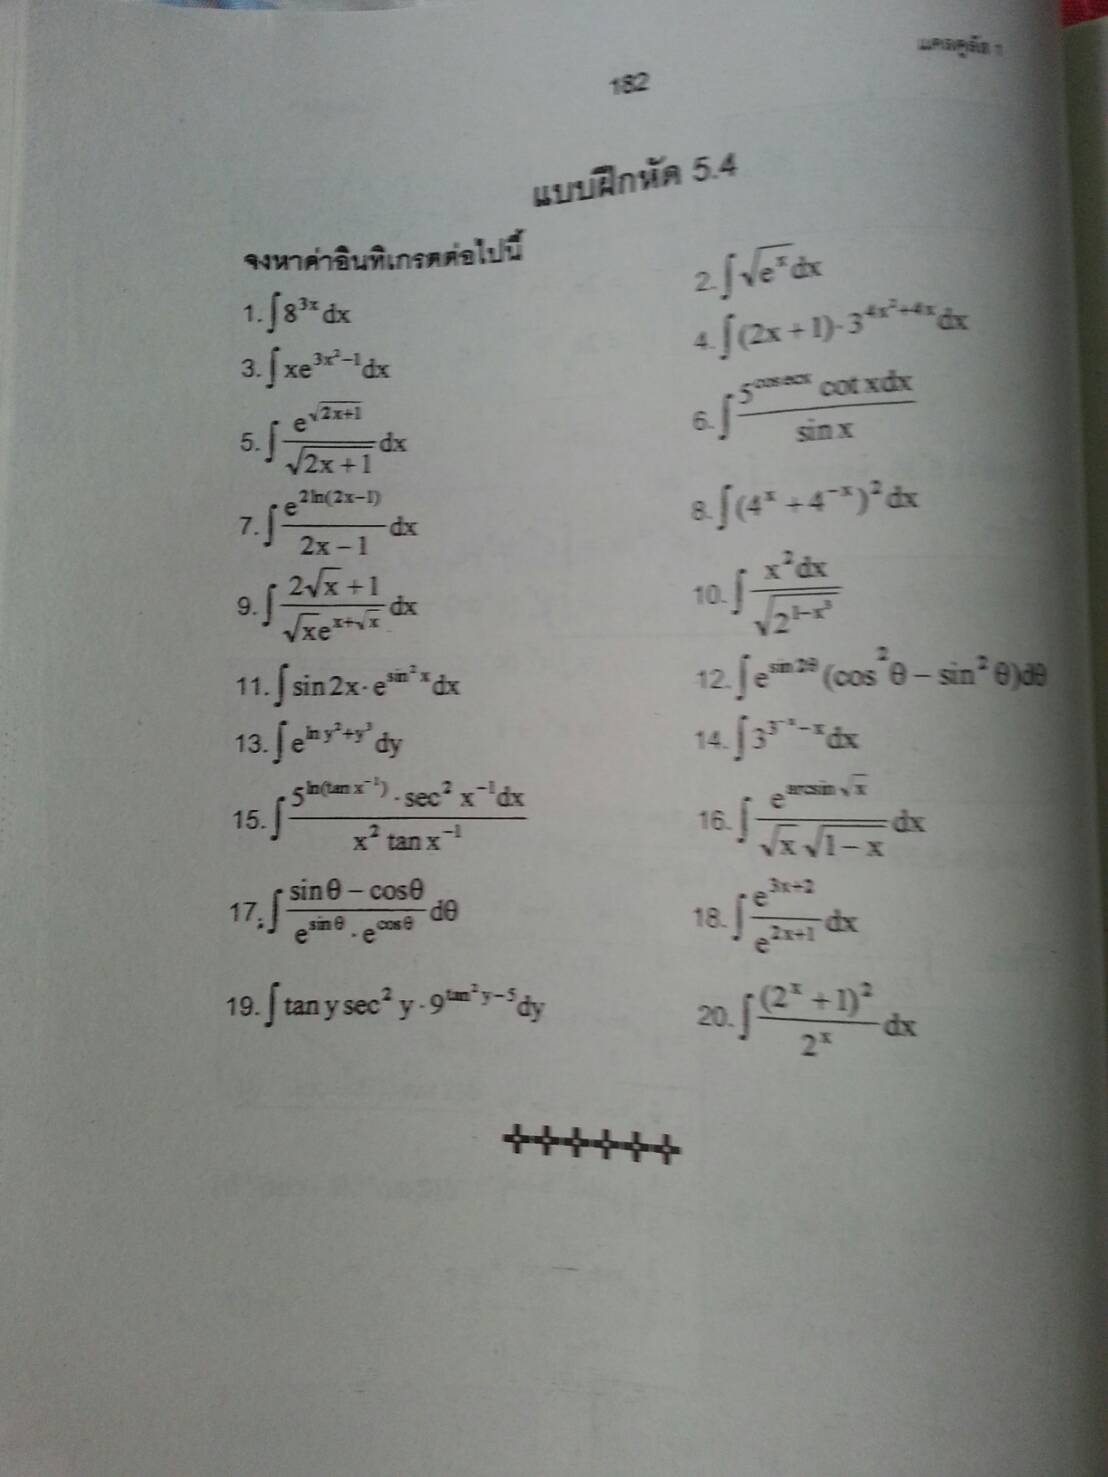 แคลคูลัส 1
182
แบบฝึกหัด 5.4
จงหาค่าอินทิเกรตต่อไปนี้
1. ∫8^{3x}dx
2. ∫√(e^x)dx
3. ∫xe^{3x²−1}dx
4. ∫(2x+1)·3^{4x²+4x}dx
5. ∫e^{√(2x+1)}/√(2x+1) dx
6. ∫5^{cosecx} cot xdx/sin x
7. ∫e^{2ln(2x−1)}/(2x−1) dx
8. ∫(4^x+4^{−x})²dx
9. ∫(2√x+1)/(√xe^{x+√x}) dx
10. ∫x²dx/√(2^{1−x³})
11. ∫sin2x·e^{sin²x}dx
12. ∫e^{sin2θ}(cos²θ−sin²θ)dθ
13. ∫e^{ln y²+y³}dy
14. ∫3^{3^{−x}−x}dx
15. ∫5^{ln(tan x^{−1})}·sec² x^{−1}dx/(x² tan x^{−1})
16. ∫e^{arcsin√x}/(√x√(1−x)) dx
17. ∫(sinθ−cosθ)/(e^{sinθ}·e^{cosθ}) dθ
18. ∫e^{3x+2}/e^{2x+1} dx
19. ∫tan y sec² y·9^{tan²y−5}dy
20. ∫(2^x+1)²/2^x dx